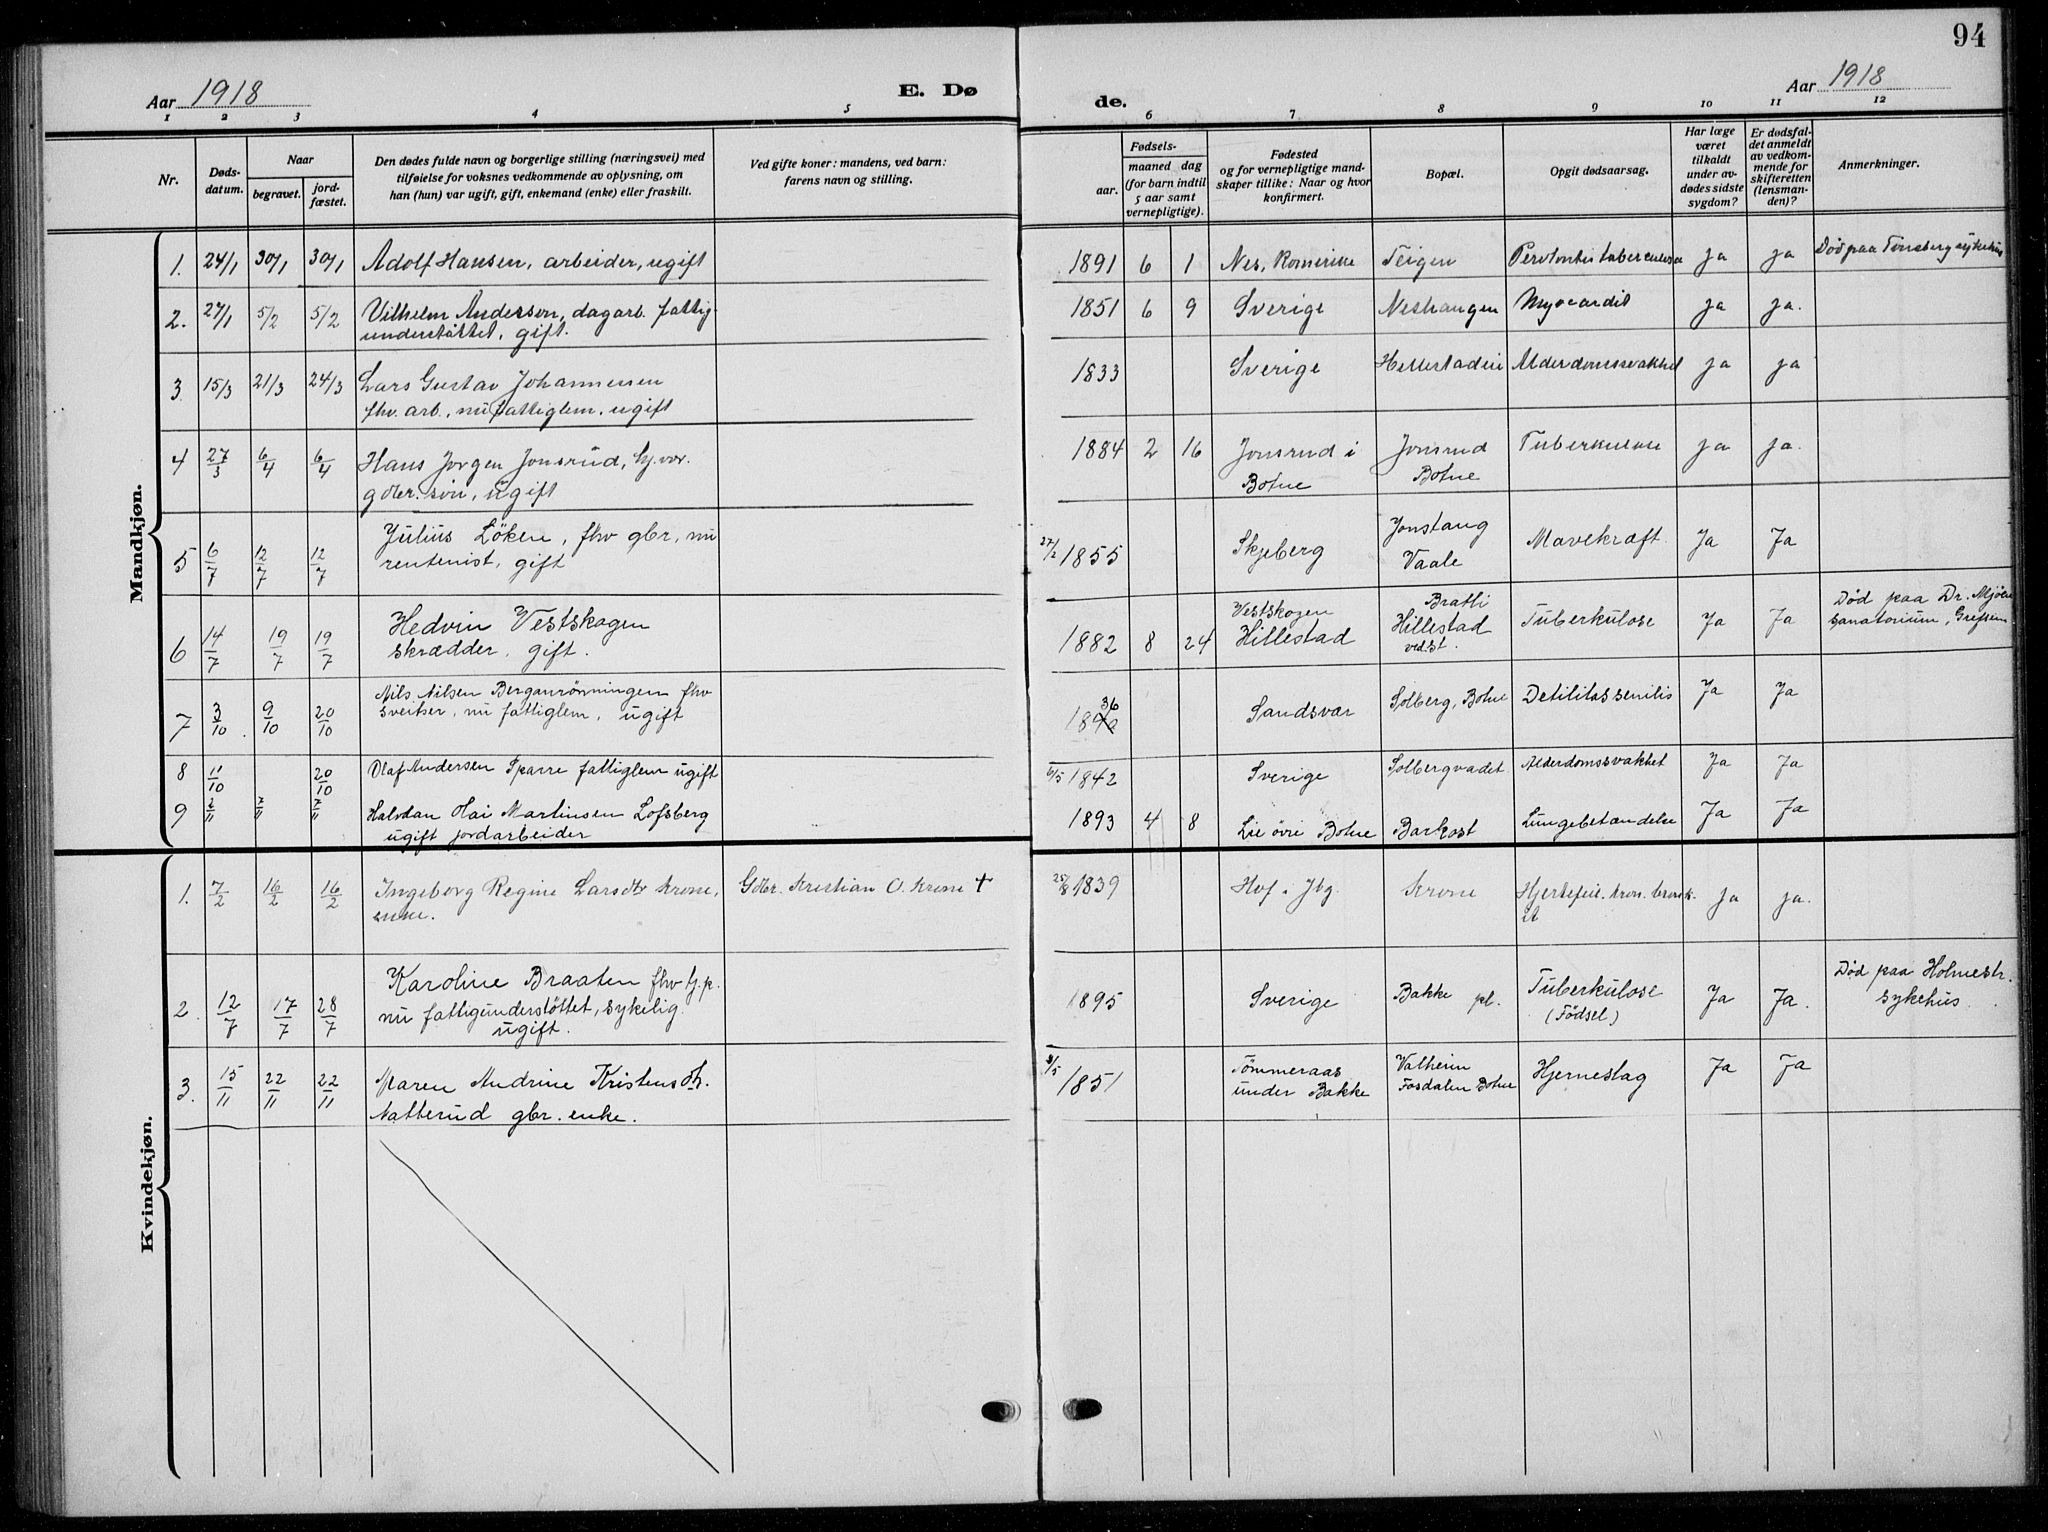 94
Aar 1918
E. Dø
de.
Aar 1918
1 2 3 4 5 6 7 8 9 10 11 12
Nr.
Døds-
datum.
Naar
begravet.
jord-
fæstet.
Den dødes fulde navn og borgerlige stilling (næringsvei) med
tilføielse for voksnes vedkommende av oplysning, om
han (hun) var ugift, gift, enkemand (enke) eller fraskilt.
Ved gifte koner: mandens, ved barn:
farens navn og stilling.
Fødsels-
aar.
maaned dag
(for barn indtil
5 aar samt
vernepligtige).
Fødested
og for vernepligtige mand-
skaper tillike: Naar og hvor
konfirmert.
Bopæl.
Opgit dødsaarsag.
Har læge
været
tilkaldt
under av-
dødes sidste
sygdom?
Er dødsfal-
det anmeldt
av vedkom-
mende for
skifteretten
(lensman-
den)?
Anmerkninger.
Mandkjøn.
1. 24/1 30/1 30/1 Adolf Hansen, arbeider, ugift 1891 6 1 Nes, Romerike Teigen Peritonitis tuberculosa ja ja Død paa Tønsberg sykehus
2. 27/1 5/2 5/2 Vilhelm Anderson, dagarb. fattig-
understøttet, gift. 1851 6 9 Sverige Neshaugen Myocardit ja ja.
3. 15/3 21/3 24/3 Lars Gustav Johannessen
fhv. arb., nu fattiglem, ugift 1833 Sverige Hillestad Alderdomssvakhet ja ja
4 27/3 6/4 6/4 Hans Jørgen Jonsrud, hj.vær.
gbr. søn, ugift 1884 2 16 Jonsrud i
Botne Jonsrud
Botne Tuberkulose ja ja.
5 6/7 12/7 12/7 Julius Löken, fhv gbr, nu
rentenist, gift 27/2 1855 Skjeberg Jonstang
Vaale Mavekræft. Ja Ja
6 14/7 19/7 19/7 Hedvin Vestskogen
skrædder, gift. 1882 8 24 Vestskogen
Hillestad Bratli
Hillestad
vedst. Tuberkulose Ja Ja Død paa Dr. Mjöen
sanatorium, Grefsen
7 3/10 9/10 20/10 Nils Nilsen Berganrönningen fhv
sveitser, nu fattiglem, ugift 1836 Sandsvær Solberg, Botne Debilitas senilis Ja Ja
8 11/10 20/10 Olaf Andersen Sparre fattiglem ugift 6/5 1842 Sverige Solbergvadet Alderdomssvakhet Ja Ja
9 2/11 7/11 7/11 Halvdan Hai Martinsen Lofsberg
ugift jordarbeider 1893 4 8 Lie övre Botne Barkost Lungebetændelse Ja Ja
Kvindekjøn.
1. 7/2 16/2 16/2 Ingeborg Regine Larsdtr Krone,
enke. Gbr. Kristian O. Krone † 25/8 1839 Hof i Jbg. Krone Hjertefeil. kron. bronk-
it Ja ja.
2. 12/7 17/7 28/7 Karoline Braaten fhv tj.p.
nu fattigunderstöttet, sykelig.
ugift. 1895 Sverige Bakke pl. Tuberkulose
(Fødsel) Ja Ja. Død paa Holmestr.
sykehus
3. 15/11 22/11 22/11 Maren Andrine Kristensdtr.
Natterud gbr. enke. 9/5 1851 Tömmeraas
under Bakke Valheim
Fosdalen Botne Hjerneslag Ja Ja